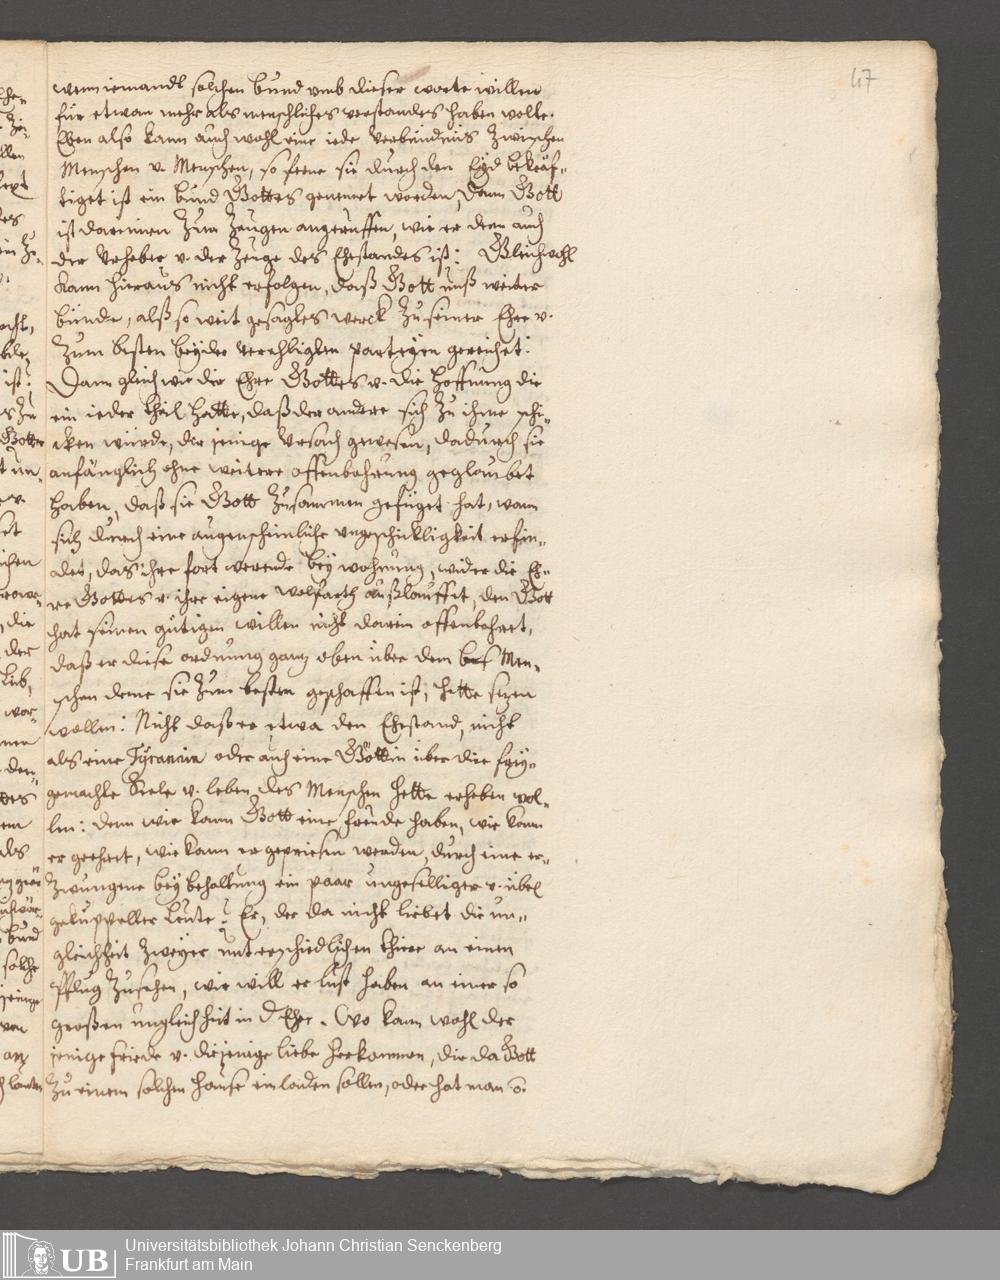 47
wenn iemandt solchen bund umb dieser worte willen
für etwan mehr als menschliches verstandes haben wolte.
Eben also kann auch wohl eine iede verbündnis zwischen
Menschen v. Menschen, so ferne sie durch den Eyd bekräf-
tiget ist ein bund Gottes genennet werden, dann Gott
ist darinnen zum Zeugen angeruffen, wie er denn auch
der Urheber v. der Zeuge des Ehestandes ist: Gleichwohl
kann hieraus nicht erfolgen, daß Gott unß weiter
bünde, alß so weit gesagtes werck zu seiner Ehre v.
zum besten beyder verehligten parteyen gereichet:
Dann gleich wie die Ehre Gottes v. die Hoffnung die
ein ieder theil hatte, daß der andere sich zu ihme schi-
cken würde, die jenige Ursach gewesen, dadurch sie
anfänglich ohne weitere offenbahrung geglaubet
haben, daß sie Gott zusammen gefüget hat, wann
sich durch eine augenscheinliche ungeschickligkeit erfin-
det, das ihre fort werende bey wohnung, wider die Eh-
re Gottes v. ihre eigene wolfarth außlauffet, den Gott
hat seinen gütigen willen nicht darein offenbahret,
daß er diese ordnung ganz oben über dem Men-
schen deme sie zum besten geschaffen ist, hette sezen
wollen: Nicht daß er etwa den Ehestand, nicht
als eine Tyrannin oder auch eine Göttin über die frey-
gemachte Seele v. leben des Menschen hette erheben wol-
len: denn wie kann Gott eine freude haben, wie kann
er geehret, wie kann er gepriesen werden, durch eine er-
zwungene beybehaltung ein paar ungeselliger v. übel
gekuppelter Leute? Er, der da nicht liebet die un-
gleichheit zweyer unterschiedlichen thiere an einen
Pflug zusehen, wie will er lust haben an einer so
großen ungleichheit in d Ehe. Wo kann wohl der
jenige friede v. diejenige liebe herkommen, die da Gott
zu einem solchen Hause einladen sollen, oder hat man
Universitätsbibliothek Johann Christian Senckenberg
Frankfurt am Main
UB